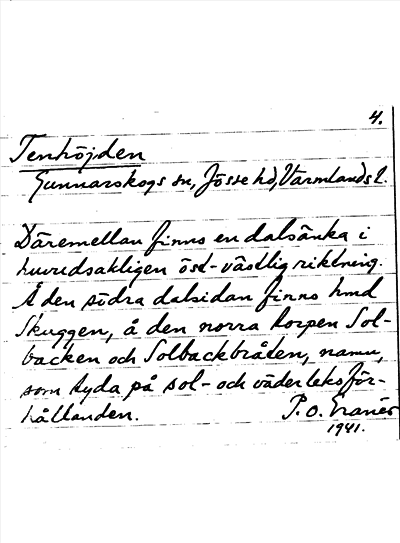 4.
Tenhöjden
Gunnarskogs sn, Jösse hd, Värmlands l.
Däremellan finns en dalsänka i
huvudsakligen öst-västlig riktning.
Å den södra dalsidan finns hmd
Skuggen, å den norra torpen Sol-
backen och Solbackbråten, namn,
som tyda på sol- och väderleksför-
hållanden.
P. O.
1941.